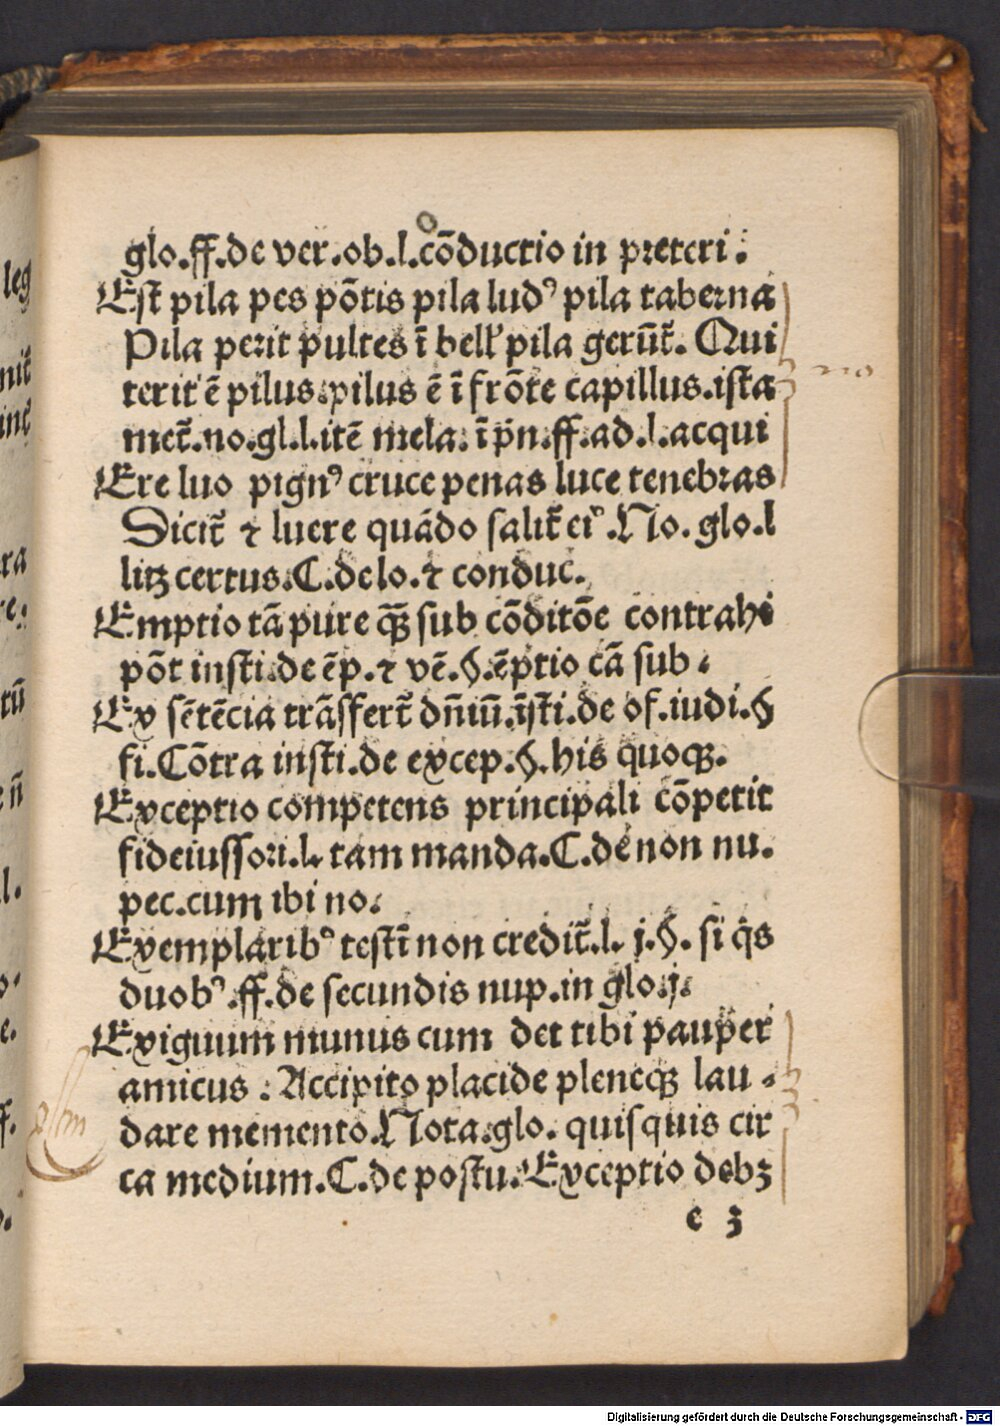 glo.ff.de ver.ob.l.cōductio in preteri.
Est pila pes pōtis pila ludꝰ pila taberna
Pila perit pultes ī bell' pila gerūt̄. Qui
terit ē pilus.pilus ē ī frōte capillus.ista
met̄.no.gl.l.itē mela.ī pn̄.ff.ad.l.acqui
Ere luo pignꝰ cruce penas luce tenebras
Dicit̄ ⁊ luere quādo salit̄ eiꝰ.No.glo.l
litꝫ certus.C.de lo.⁊ conduc.
Emptio tā pure qꝫ̄ sub cōditōe contrahi
pōt insti.de ēp.⁊ vē.§.ēptio tā sub.
Ex sētēcia trāsfert̄ dn̄iū.īsti.de of.iudi.§
fi.Cōtra insti.de excep.§.his quoqꝫ.
Exceptio competens principali cōpetit
fideiussori.l.tam manda.C.de non nu.
pec.cum ibi no.
Exemplaribꝰ testī non credit̄.l.j.§.si q̇s
duobꝰ.ff.de secundis nup.in glo.j.
Exiguum munus cum det tibi pauper
amicus : Accipito placide pleneqꝫ lau
dare memento.Nota.glo. quisquis cir
ca medium.C.de postu.Exceptio debꝫ
e 3
Digitalisierung gefördert durch die Deutsche Forschungsgemeinschaft - DFG